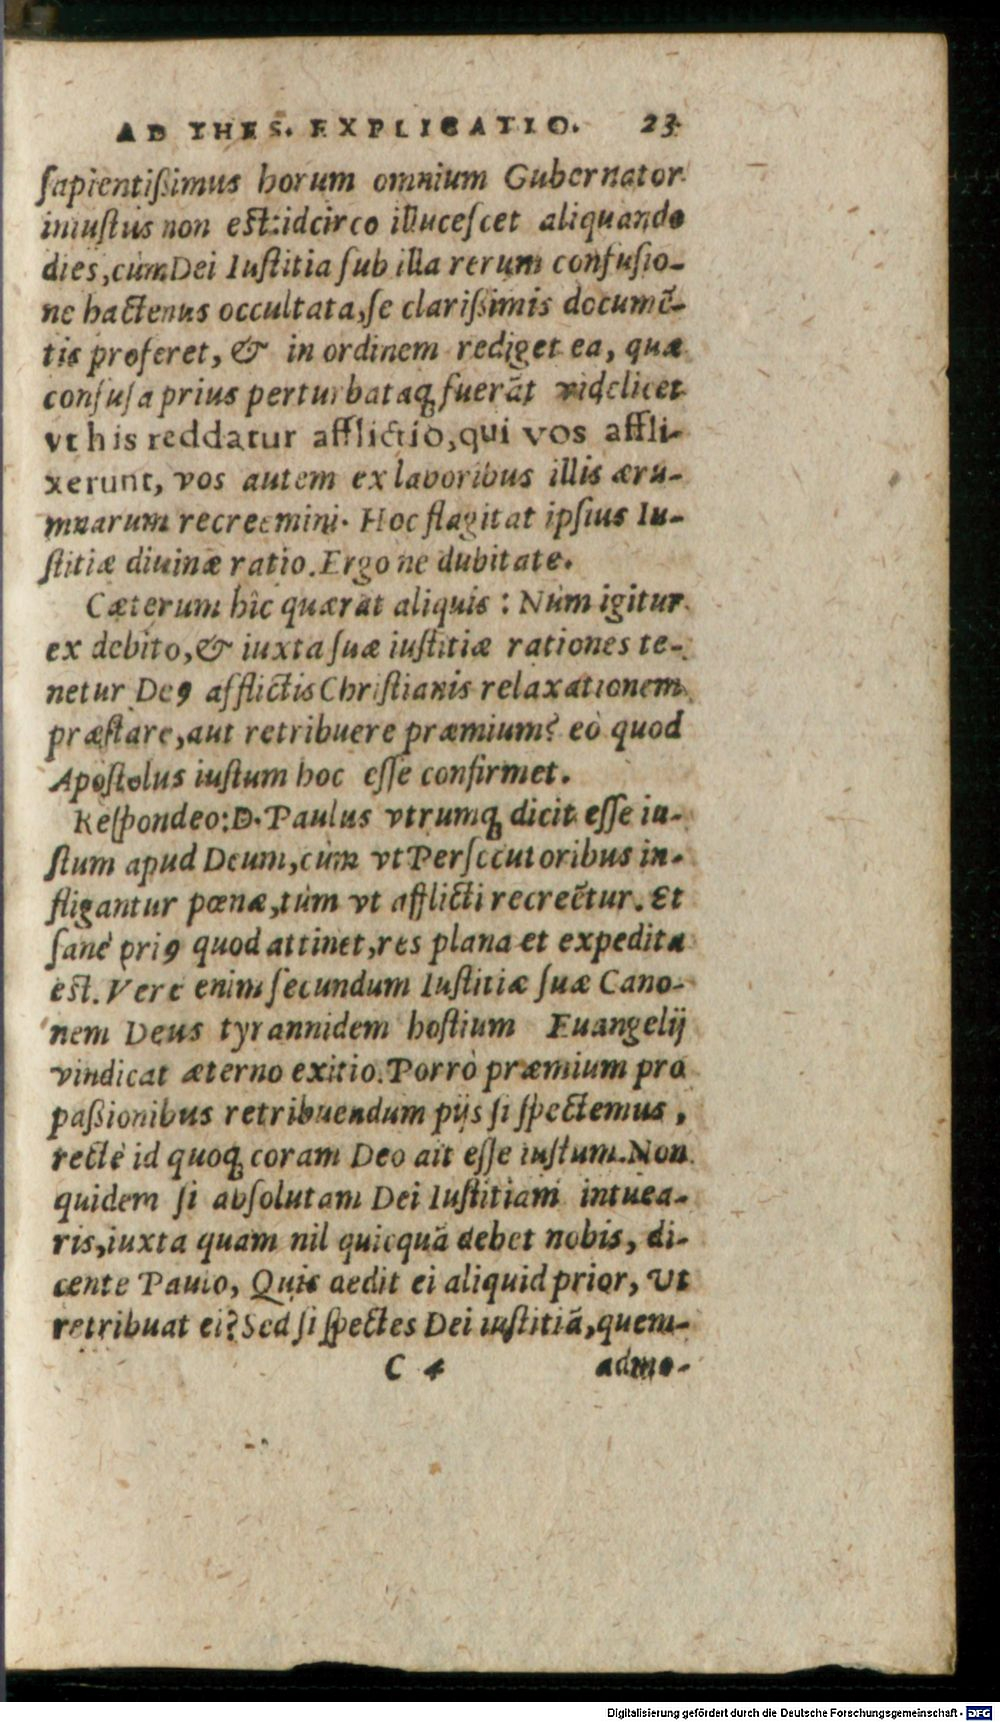 AD THES. EXPLICATIO. 23
ſapientiſsimus horum omnium Gubernator
iniuſtus non eſt: idcirco illuceſcet aliquando
dies, cùm Dei Iuſtitia ſub illa rerum confuſio-
ne hactenus occultata, ſe clariſsimis documē-
tis proferet, & in ordinem rediget ea, quæ
confuſa prius perturbataq́ fuerāt videlicet
vt his reddatur afflictio, qui vos affli-
xerunt, vos autem ex laboribus illis æru-
mnarum recreemini. Hoc flagitat ipſius Iu-
ſtitiæ diuinæ ratio. Ergo ne dubitate.
Cæterum hîc quærat aliquis: Nùm igitur
ex debito, & iuxta ſuæ iuſtitiæ rationes te-
netur Deꝰ afflictis Chriſtianis relaxationem
præſtare, aut retribuere præmium? eò quod
Apoſtolus iuſtum hoc eſſe confirmet.
Reſpondeo: D. Paulus vtrumq́ dicit eſſe iu-
ſtum apud Deum, cùm vt Perſecutoribus in-
fligantur pœnæ, tùm vt afflicti recreētur. Et
ſanè priꝰ quod attinet, res plana et expedita
eſt. Vere enim ſecundum Iuſtitiæ ſuæ Cano-
nem Deus tyrannidem hoſtium Euangelij
vindicat æterno exitio. Porrò præmium pro
paſsionibus retribuendum pijs ſi ſpectemus,
rectè id quoq́ coram Deo ait eſſe iuſtum. Non
quidem ſi abſolutam Dei Iuſtitiam intuea-
ris, iuxta quam nil quicquā debet nobis, di-
cente Paulo, Quis dedit ei aliquid prior, Vt
retribuat ei? Sed ſi ſpectes Dei iuſtitiā, quem-
C 4 admo-
Digitalisierung gefördert durch die Deutsche Forschungsgemeinschaft - DFG